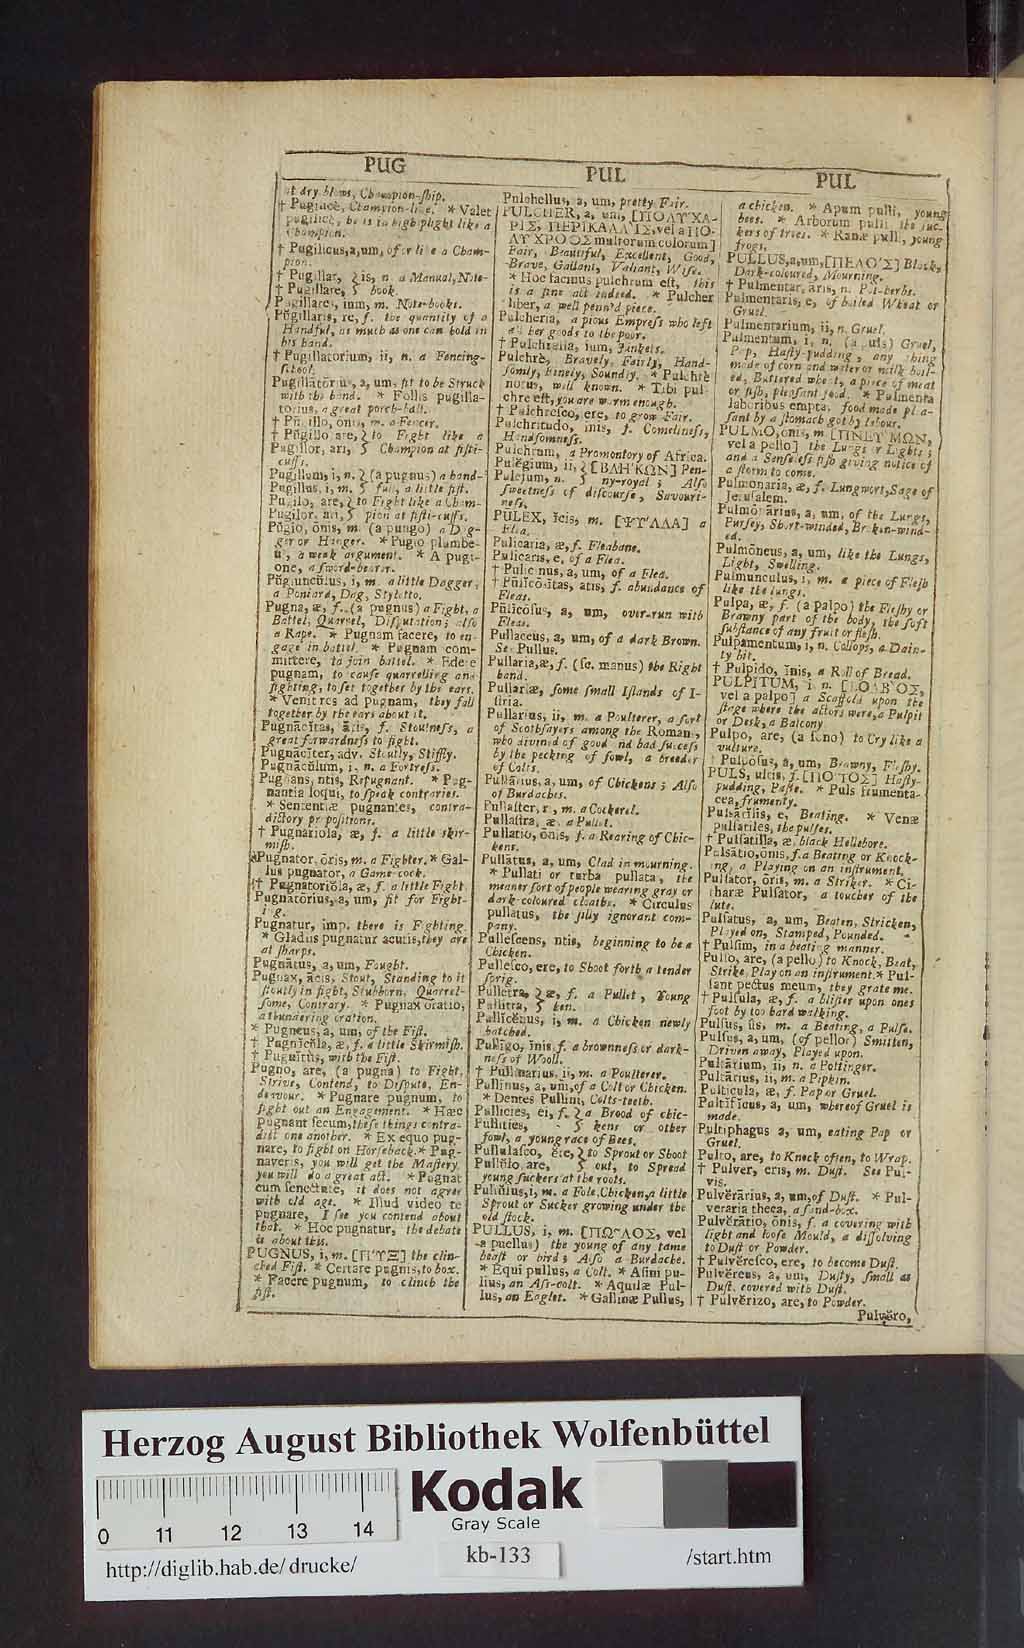 PUG
PUL
PUL
at dry blows, Champion-ship.
† Pugilicè, Champion-like. * Valet
pugilicè, he is in high plight like a
Champion.
† Pugilicus, a, um, of or like a Cham-
pion.
† Pugillar, } is, n. a Manual, Note-
† Pugillare, } book.
Pugillares, ium, m. Note-books.
Pŭgillaris, re, f. the quantity of a
Handful, as much as one can hold in
his hand.
† Pugillatorium, ii, n. a Fencing-
school.
Pugillatōrius, a, um, fit to be Struck
with the hand. * Follis pugilla-
torius, a great porch-ball.
† Pŭgillo, onis, m. a Fencer.
† Pŭgillo, are, } to Fight like a
Pugillor, ari, } Champion at fisti-
cuffs.
Pugillum, i, n. } (a pugnus) a hand-
Pugillus, i, m. } full, a little fist.
Pugilo, are, } to Fight like a Cham-
Pugilor, ari, } pion at fisti-cuffs.
Pūgio, ōnis, m. (a pungo) a Dag-
ger or Hanger. * Pugio plumbe-
us, a weak argument. * A pugi-
one, a sword-bearer.
Pŭgiuncŭlus, i, m. a little Dagger,
a Poniard, Dag, Styletto.
Pugna, æ, f. (a pugnus) a Fight, a
Battel, Quarrel, Disputation; also
a Rape. * Pugnam facere, to en-
gage in battel. * Pugnam com-
mittere, to join battel. * Edere
pugnam, to cause quarrelling and
fighting, to set together by the ears.
* Venit res ad pugnam, they fall
together by the ears about it.
Pugnācĭtas, ātis, f. Stoutness, a
great forwardness to fight.
Pugnācĭter, adv. Stoutly, Stiffly.
Pugnācŭlum, i, n. a Fortress.
Pugnans, ntis, Repugnant. * Pug-
nantia loqui, to speak contraries.
* Sententiæ pugnantes, contra-
dictory propositions.
† Pugnariola, æ, f. a little skir-
mish.
Pugnator, ōris, m. a Fighter. * Gal-
lus pugnator, a Game-cock.
† Pugnatoriŏla, æ, f. a little Fight.
Pugnatōrius, a, um, fit for Fight-
ing.
Pugnatur, imp. there is Fighting.
* Gladiis pugnatur acutis, they are
at sharps.
Pugnātus, a, um, Fought.
Pugnax, ācis, Stout, Standing to it
stoutly in fight, Stubborn, Quarrel-
some, Contrary. * Pugnax oratio,
a thundering oration.
* Pugneus, a, um, of the Fist.
† Pugnĭcŭla, æ, f. a little Skirmish.
† Pugnĭtùs, with the Fist.
Pugno, are, (a pugna) to Fight,
Strive, Contend, to Dispute, En-
deavour. * Pugnare pugnum, to
fight out an Engagement. * Hæc
pugnant secum, these things contra-
dict one another. * Ex equo pug-
nare, to fight on Horseback. * Pug-
naveris, you will get the Mastery,
you will do a great act. * Pugnat
cum senectute, it does not agree
with old age. * Illud video te
pugnare, I see you contend about
that. * Hoc pugnatur, the debate
is about this.
PUGNUS, i, m. [ΠΥΞ] the clin-
ched Fist. * Certare pugnis, to box.
* Facere pugnum, to clinch the
fist.
Pulchellus, a, um, pretty Fair.
PULCHER, a, um, [ΠΟΛΥΧΑ-
ΡΙΣ, ΠΕΡΙΚΑΛΛΗΣ, vel a ΠΟ-
ΛΥΧΡΟΟΣ multorum colorum]
Fair, Beautiful, Excellent, Good,
Brave, Gallant, Valiant, Wise.
* Hoc facinus pulchrum est, this
is a fine act indeed. * Pulcher
liber, a well penn'd piece.
Pulcheria, a pious Empress who left
all her goods to the poor.
† Pulchralia, ium, Junkets.
Pulchrè, Bravely, Fairly, Hand-
somly, Finely, Soundly. * Pulchrè
notus, well known. * Tibi pul-
chre est, you are warm enough.
† Pulchresco, ere, to grow Fair.
Pulchritudo, inis, f. Comeliness,
Handsomness.
Pulchrum, a Promontory of Africa.
Pulēgium, ii, } [ΒΛΗΚΩΝ] Pen-
Pulejum, n. } ny-royal; Also
sweetness of discourse, Savouri-
ness.
PULEX, ĭcis, m. [ΨΥΛΛΑ] a
Flea.
Pulicaria, æ, f. Fleabane.
Pulicaris, e, of a Flea.
† Pulicinus, a, um, of a Flea.
† Pŭlĭcōsitas, atis, f. abundance of
Fleas.
Pūlicōsus, a, um, over-run with
Fleas.
Pullaceus, a, um, of a dark Brown.
See Pullus.
Pullaria, æ, f. (sc. manus) the Right
hand.
Pullariæ, some small Islands of I-
stria.
Pullarius, ii, m. a Poulterer, a sort
of Soothsayers among the Romans,
who divined of good and bad success
by the pecking of fowl, a breeder
of Colts.
Pullārius, a, um, of Chickens; Also
of Burdaches.
Pullaster, ri, m. a Cockerel.
Pullastra, æ, a Pullet.
Pullatio, ōnis, f. a Rearing of Chic-
kens.
Pullātus, a, um, Clad in mourning.
* Pullati or turba pullata, the
meaner sort of people wearing gray or
dark-coloured cloaths. * Circulus
pullatus, the silly ignorant com-
pany.
Pullescens, ntis, beginning to be a
Chicken.
Pullesco, ere, to Shoot forth a tender
sprig.
Pulletra, } æ, f. a Pullet, Young
Pullitra, } hen.
Pullĭcēnus, i, m. a Chicken newly
hatched.
Pullīgo, ĭnis, f. a brownness or dark-
ness of Wooll.
† Pullinarius, ii, m. a Poulterer.
Pullinus, a, um, of a Colt or Chicken.
* Dentes Pullini, Colts-teeth.
Pullicies, ei, f. } a Brood of chic-
Pullities, } kens or other
fowl, a young race of Bees.
Pullulasco, ĕre, } to Sprout or Shoot
Pullŭlo, are, } out, to Spread
young suckers at the roots.
Pullŭlus, i, m. a Fole, Chicken, a little
Sprout or Sucker growing under the
old stock.
PULLUS, i, m. [ΠΩΛΟΣ, vel
a puellus) the young of any tame
beast or bird; Also a Burdache.
* Equi pullus, a Colt. * Asini pu-
lius, an Ass-colt. * Aquilæ Pul-
lus, an Eaglet. * Gallinæ Pullus,
a chicken. * Apum pulli, young
bees. * Arborum pulli, the suc-
kers of trees. * Ranæ pulli, young
frogs.
PULLUS, a, um, [ΠΕΛΟΣ] Black,
Dark-coloured, Mourning.
† Pulmentar, āris, n. Pot-herbs.
Pulmentaris, e, of boiled Wheat or
Gruel.
Pulmentarium, ii, n. Gruel.
Pulmentum, i, n. (a puls) Gruel,
Pap, Hasty-pudding, any thing
made of corn and water or milk boil-
ed, Buttered wheat, a piece of meat
or fish, pleasant food. * Pulmenta
laboribus empta, food made plea-
sant by a stomach got by labour.
PULMO, ōnis, m. [ΠΝΕΥΜΩΝ,
vel a pello] the Lungs or Lights;
and a Senseless fish giving notice of
a storm to come.
Pulmonaria, æ, f. Lungwort, Sage of
Jerusalem.
Pulmōnārius, a, um, of the Lungs,
Pursey, Short-winded, Broken-wind-
ed.
Pulmōneus, a, um, like the Lungs,
Light, Swelling.
Pulmunculus, i, m. a piece of Flesh
like the lungs.
Pulpa, æ, f. (a palpo) the Fleshy or
Brawny part of the body, the soft
substance of any fruit or flesh.
Pulpamentum, i, n. Collops, a Dain-
ty bit.
† Pulpido, ĭnis, a Roll of Bread.
PULPITUM, i, n. [ΠΟΛΒΟΣ,
vel a palpo] a Scaffold upon the
stage where the actors were, a Pulpit
or Desk, a Balcony.
Pulpo, are, (a sono) to Cry like a
vulture.
† Pulpōsus, a, um, Brawny, Fleshy.
PULS, ultis, f. [ΠΟΛΤΟΣ] Hasty-
pudding, Paste. * Puls frumenta-
cea, frumenty.
Pulsātĭlis, e, Beating. * Venæ
pulsatiles, the pulses.
† Pulsatilla, æ, black Hellebore.
Pulsātio, ōnis, f. a Beating or Knock-
ing, a Playing on an instrument.
Pulsātor, ōris, m. a Striker. * Ci-
tharæ Pulsator, a toucher of the
lute.
Pulsatus, a, um, Beaten, Stricken,
Played on, Stamped, Pounded.
† Pulsim, in a beating manner.
Pulso, are, (a pello) to Knock, Beat,
Strike, Play on an instrument. * Pul-
sant pectus meum, they grate me.
† Pulsula, æ, f. a blister upon ones
foot by too hard walking.
Pulsus, ūs, m. a Beating, a Pulse.
Pulsus, a, um, (of pellor) Smitten,
Driven away, Played upon.
Pultārium, ii, n. a Pottinger.
Pultārius, ii, m. a Pipkin.
Pulticula, æ, f. Pap or Gruel.
Pultĭficus, a, um, whereof Gruel is
made.
Pultiphagus a, um, eating Pap or
Gruel.
Pulto, are, to Knock often, to Wrap.
† Pulver, eris, m. Dust. See Pul-
vis.
Pulvĕrārius, a, um, of Dust. * Pul-
veraria theca, a sand-box.
Pulvĕrātio, ōnis, f. a covering with
light and loose Mould, a dissolving
to Dust or Powder.
† Pulvĕresco, ere, to become Dust.
Pulvĕreus, a, um, Dusty, small as
Dust, covered with Dust.
† Pulvĕrizo, are, to Powder.
Pulvĕro,
Herzog August Bibliothek Wolfenbüttel
Kodak
Gray Scale
0 11 12 13 14
kb-133
http://diglib.hab.de/drucke/
/start.htm